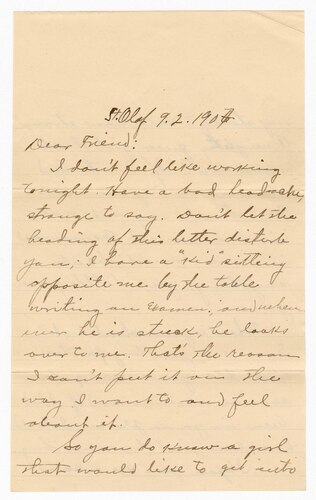 St. Olaf 9.2.1907
Dear Friend:
I don't feel like working
tonight. Have a bad headache,
strange to say. Don't let the
heading of this letter disturb
you; I have a "kid" sitting
opposite me by the table
writing an examen; and when
ever he is stuck, he looks
over to me. That's the reason
I can't put it on the
way I want to and feel
about it.
So you do know a girl
that would like to get into